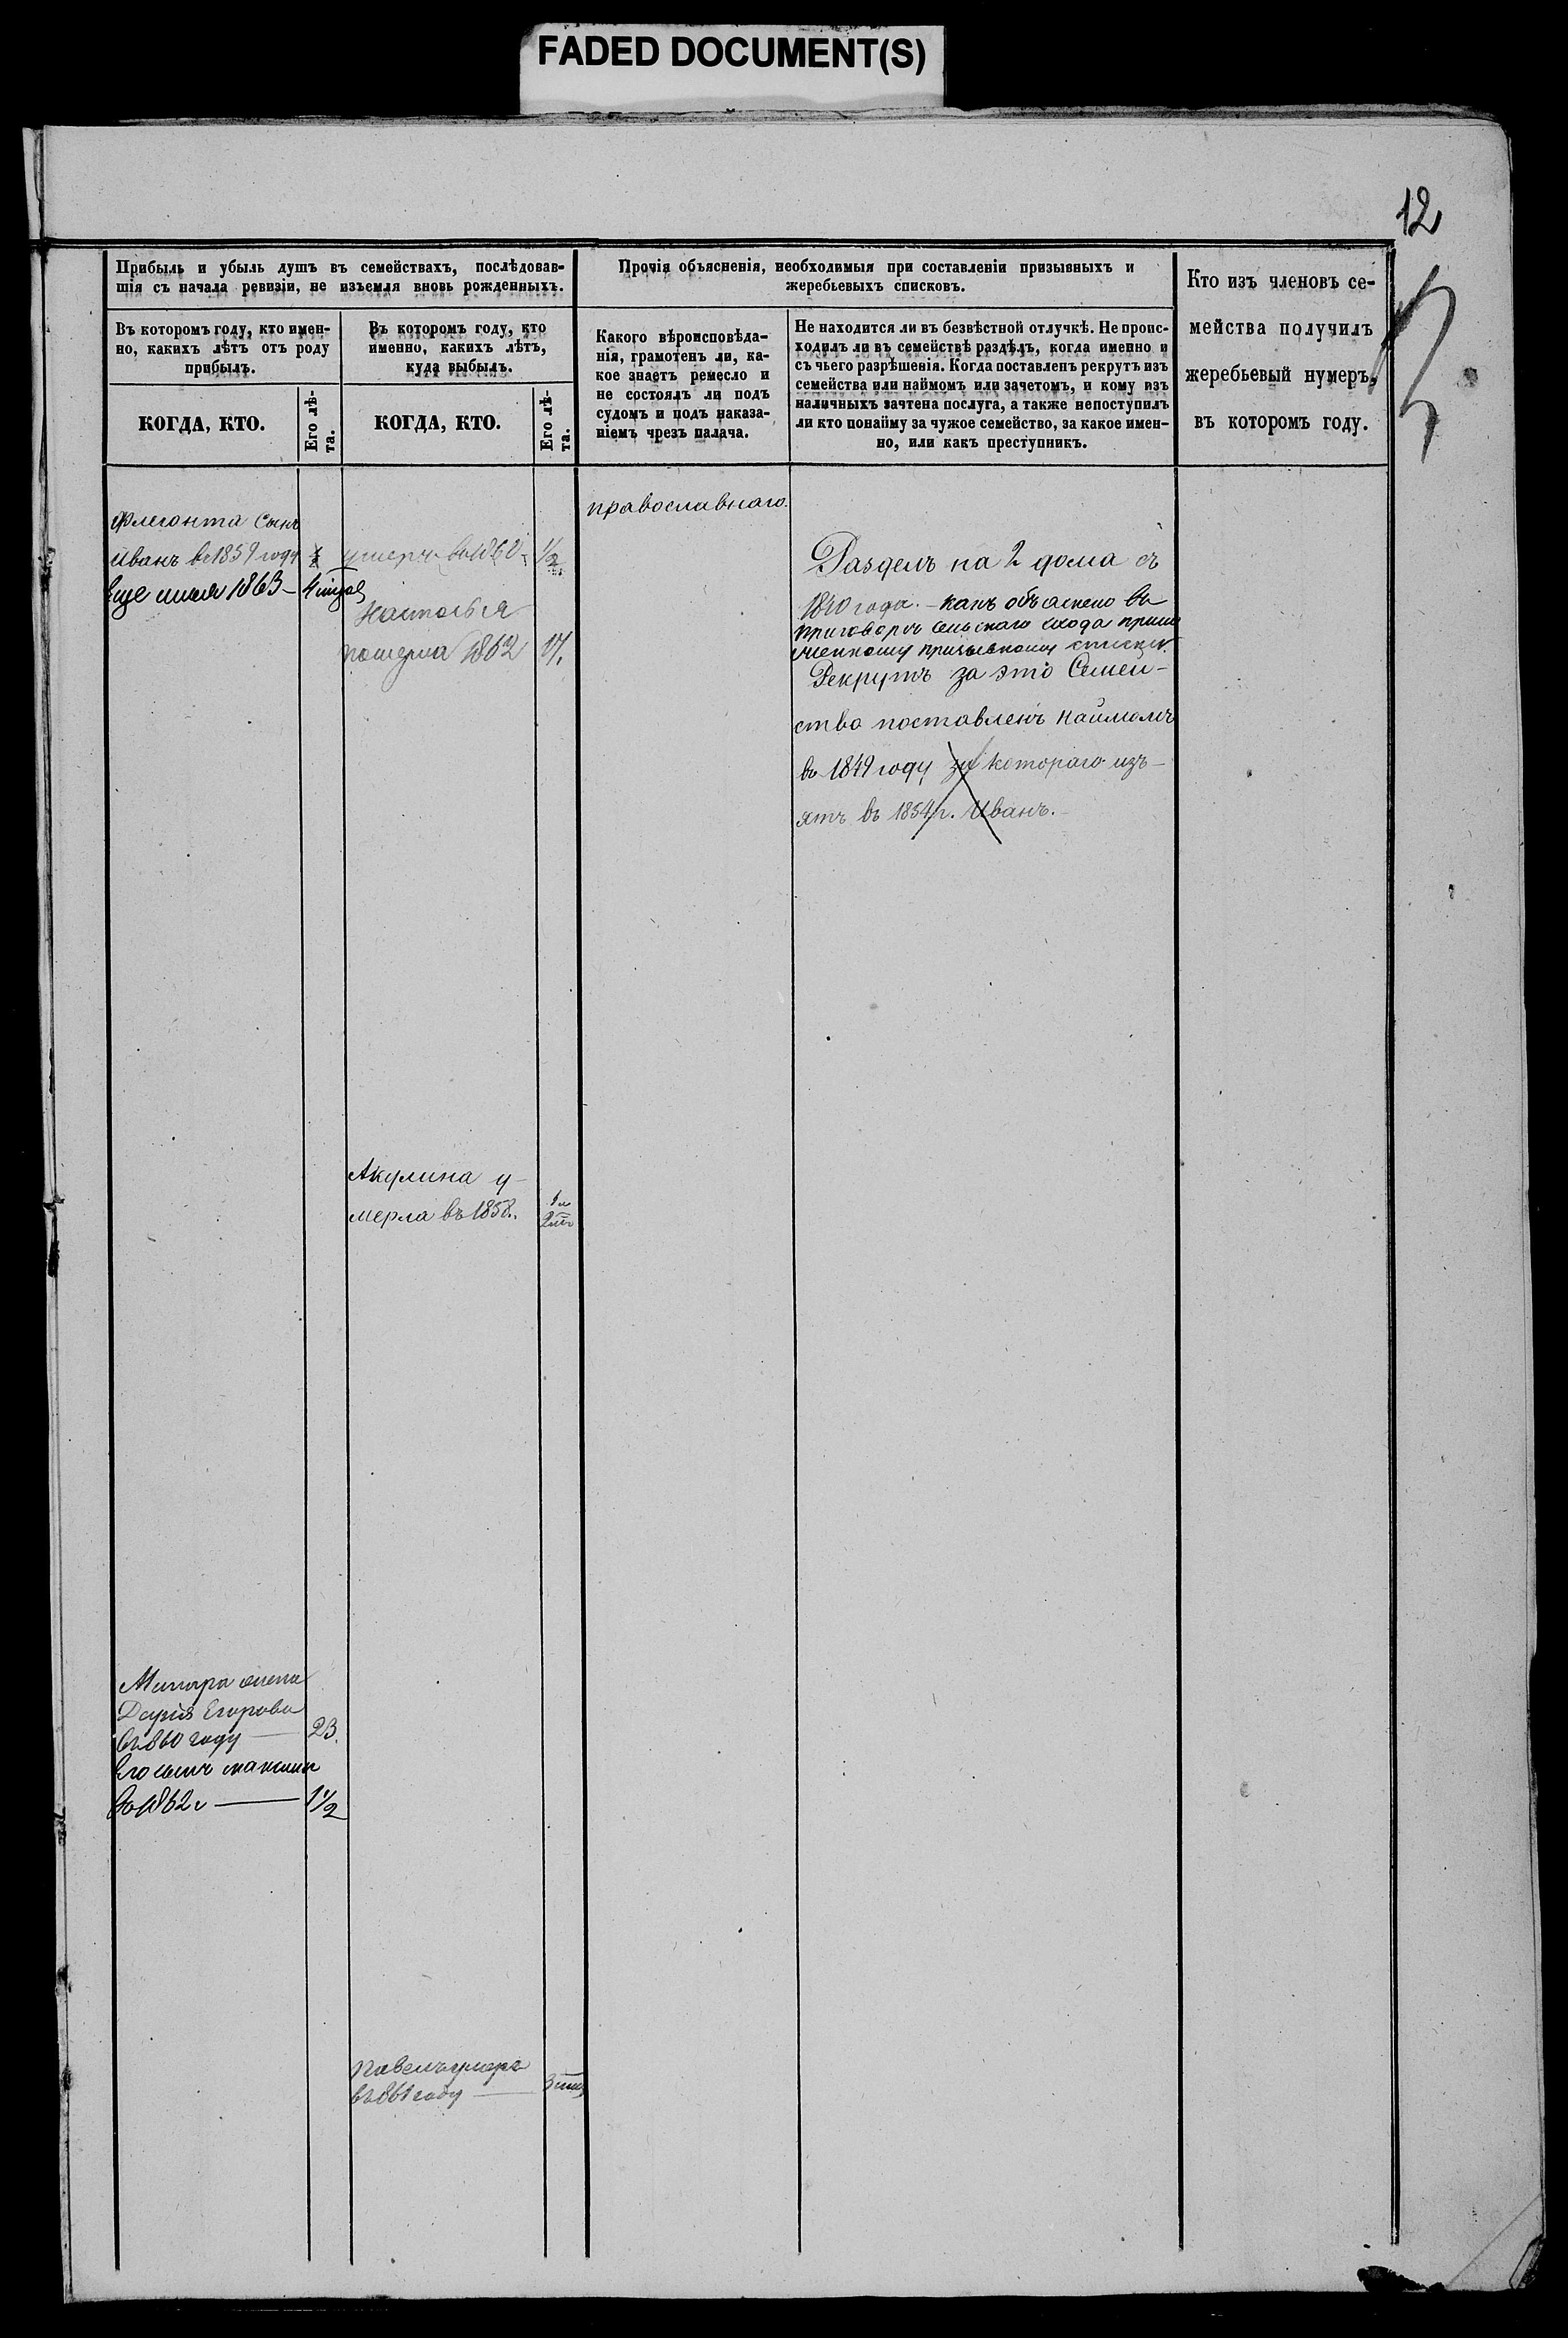 FADED DOCUMENT(S)
12
Прибыль и убыль душъ въ семействахъ, послѣдовав-
шія съ начала ревизіи, не изъемля вновь рожденныхъ.
Въ которомъ году, кто имен-
но, какихъ лѣтъ отъ роду
прибылъ.
КОГДА, КТО.
Его лѣ-
та.
Въ которомъ году, кто
именно, какихъ лѣтъ,
куда выбылъ.
КОГДА, КТО.
Его лѣ-
та.
Прочія объясненія, необходимыя при составленіи призывныхъ и
жеребьевыхъ списковъ.
Какого вѣроисповѣда-
нія, грамотенъ ли, ка-
кое знаетъ ремесло и
не состоялъ ли подъ
судомъ и подъ наказа-
ніемъ чрезъ палача.
Не находится ли въ безвѣстной отлучкѣ. Не проис-
ходилъ ли въ семействѣ раздѣлъ, когда именно и
съ чьего разрѣшенія. Когда поставленъ рекрутъ изъ
семейства или наймомъ или зачетомъ, и кому изъ
наличныхъ зачтена послуга, а также непоступилъ
ли кто понайму за чужое семейство, за какое имен-
но, или какъ преступникъ.
Кто изъ членовъ се-
мейства получилъ
жеребьевый нумеръ,
въ которомъ году.
Флегонта сынъ
Иванъ въ 1859 году
Еще 1863 –
умеръ въ 1860 1/2
Настасья
1862 17.
православнаго.
Раздѣлъ на 2 дома съ
1840 года. – какъ объяснено въ
приговорѣ сельскаго схода
призывному списку.
Рекрутъ за это Семей-
ство поставленъ наймомъ
въ 1849 году за котораго изъ-
ятъ въ 1854 г. Иванъ. –
Акулина у-
мерла въ 1858.
Дарья Егорова
въ 860 году 23.
Его сынъ максимъ
въ 1862 г 1 1/2
Павелъ умеръ
въ 861 году